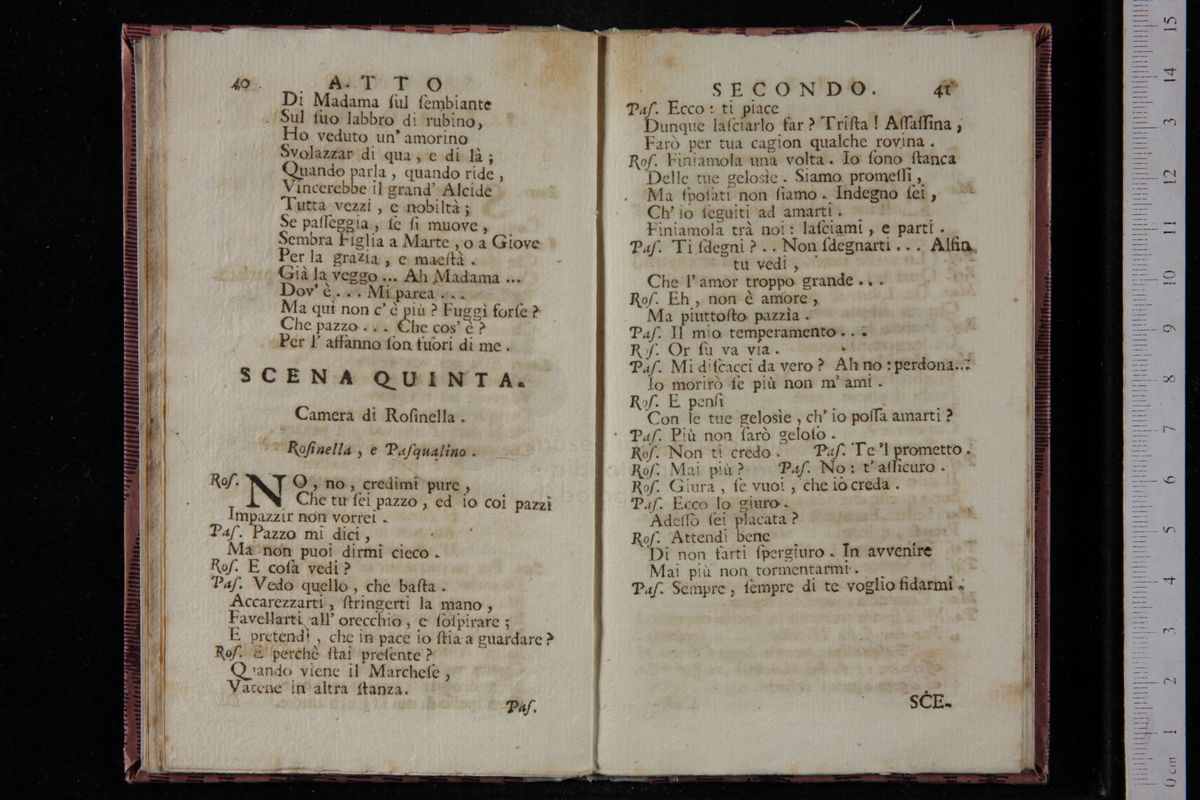 40 A.TTO
Di Madama ſul ſembiante
Sul ſuo labbro di rubino,
Ho veduto un' amorino
Svolazzar di qua, e di là;
Quando parla, quando ride,
Vincerebbe il grand' Alcide
Tutta vezzi, e nobiltà;
Se paſſeggia, ſe ſi muove,
Sembra Figlia a Marte, o a Giove
Per la grazia, e maeſtà.
Già la veggo ... Ah Madama ...
Dov' è ... Mi parea ...
Ma qui non c' è più? Fuggì forſe?
Che pazzo ... Che cos' è?
Per l' affanno ſon fuori di me.
SCENA QUINTA.
Camera di Roſinella.
Roſinella, e Paſqualino.
Roſ. NO, no, credimi pure,
Che tu ſei pazzo, ed io coi pazzi
Impazzir non vorrei.
Paſ. Pazzo mi dici,
Ma non puoi dirmi cieco.
Roſ. E coſa vedi?
Paſ. Vedo quello, che baſta.
Accarezzarti, ſtringerti la mano,
Favellarti all' orecchio, e ſoſpirare;
E pretendi, che in pace io ſtia a guardare?
Roſ. E perchè ſtai preſente?
Quando viene il Marcheſe,
Vatene in altra ſtanza.
Paſ.
SECONDO. 41
Paſ. Ecco: ti piace
Dunque laſciarlo far? Triſta! Aſſaſſina,
Farò per tua cagion qualche rovina.
Roſ. Finiamola una volta. Io ſono ſtanca
Delle tue gelosìe. Siamo promeſſi,
Ma ſpoſati non ſiamo. Indegno ſei,
Ch' io ſeguiti ad amarti.
Finiamola trà noi: laſciami, e parti.
Paſ. Ti ſdegni? .. Non ſdegnarti ... Alfin
tu vedi,
Che l' amor troppo grande ...
Roſ. Eh, non è amore,
Ma piuttoſto pazzìa.
Paſ. Il mio temperamento ...
Roſ. Or ſu va via.
Paſ. Mi diſcacci da vero? Ah no: perdona...
Io morirò ſe più non m' ami.
Roſ. E penſi
Con le tue gelosìe, ch' io poſſa amarti?
Paſ. Più non ſarò geloſo.
Roſ. Non ti credo. Paſ. Te 'l prometto.
Roſ. Mai più? Paſ. No: t' aſſicuro.
Roſ. Giura, ſe vuoi, che io creda.
Paſ. Ecco lo giuro.
Adeſſo ſei placata?
Roſ. Attendi bene
Di non farti ſpergiuro. In avvenire
Mai più non tormentarmi.
Paſ. Sempre, ſempre di te voglio fidarmi.
SCE-
15
14
3
12
11
10
9
8
7
6
5
4
3
2
1
0 cm